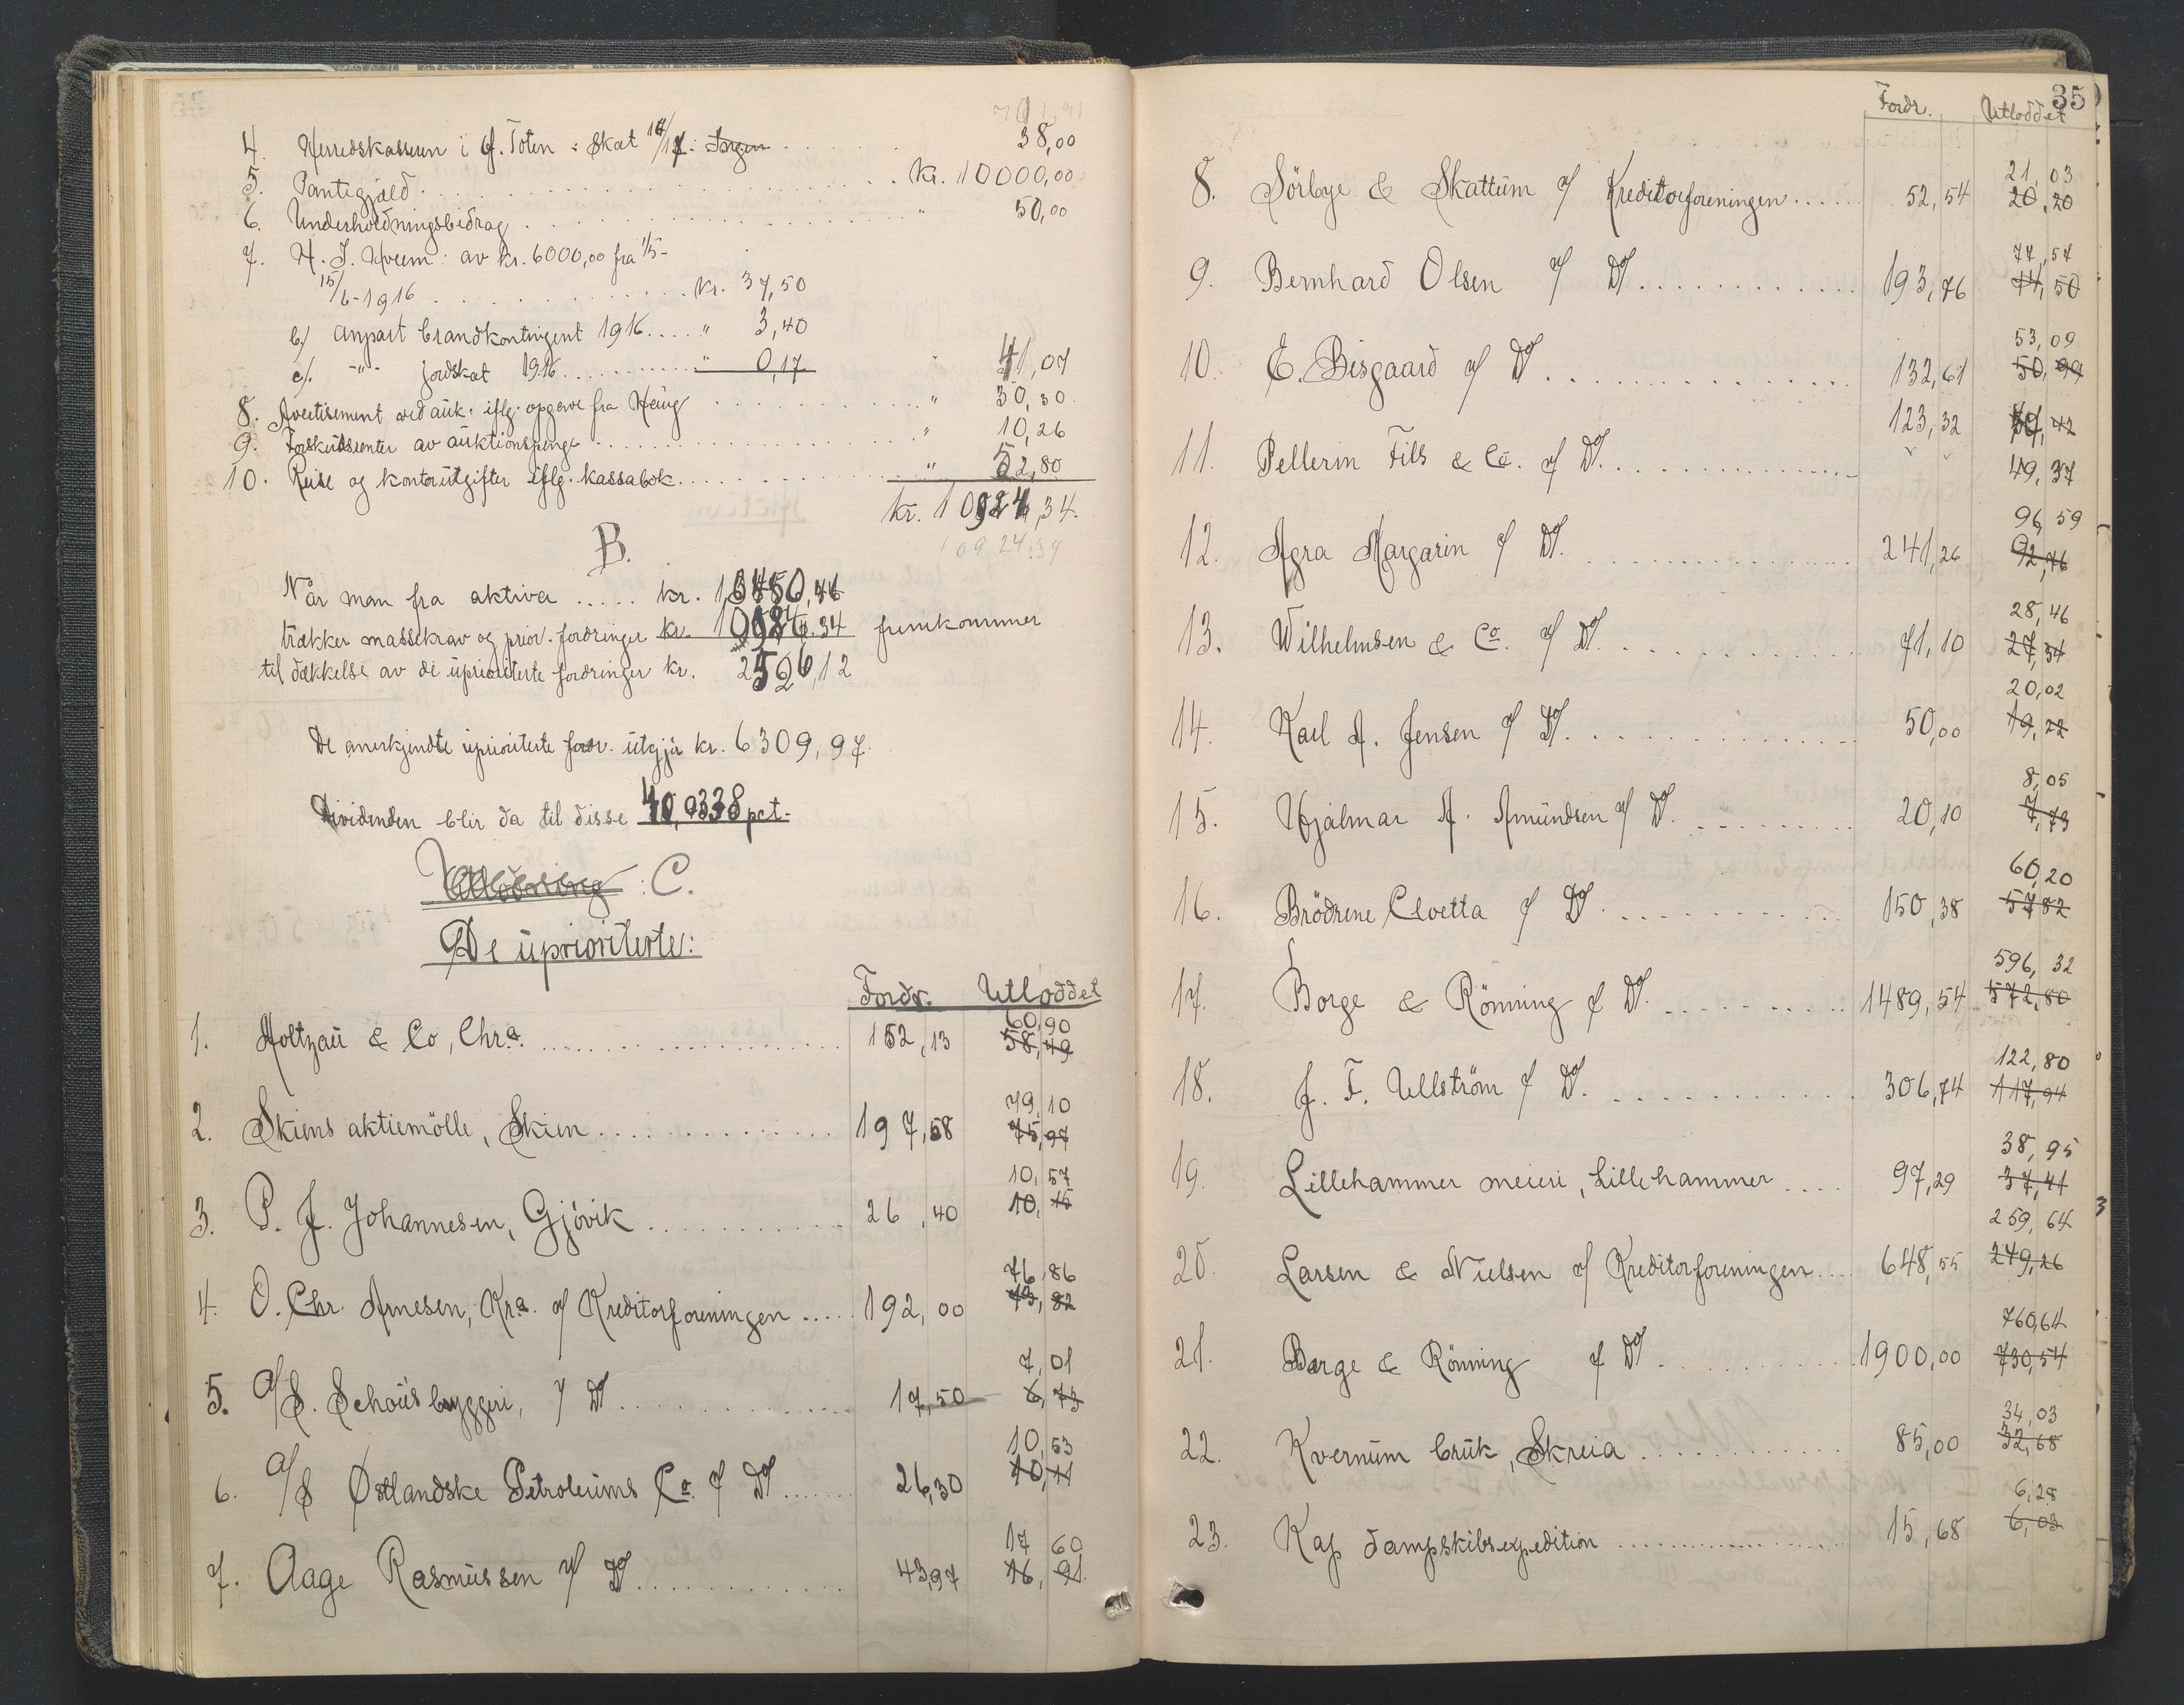 4. Herredskassen i Ø. Toten : Skat 16/17 : Ingen . . . . . 38,00
5. Pantegjæld . . . . . kr. 10000,00
6. Underholdningsbidrag . . . . . " 50,00
7. H. J. Kveem : av kr. 6000,00 fra 1/5 -
15/6 - 1916 . . . . . kr. 37,50
b/ anpart brandkontingent 1916 . . . . " 3,40
c/. -"- jordskat 1916 . . . . . " 0,17 " 41,07
8. Avertisement ved auk. iflg. opgave fra Haug . . . . . " 30,30
9. Forskudsrenter av auktionspenge . . . . . " 10,26
10. Reise og kontorutgifter iflg. kassabok . . . . . " 52,80
kr. 10924,34.
10924.34
B.
Når man fra aktiva ..... kr. 13450,46
trækker massekrav og prior. fordringer kr. 10924.34 fremkommer
til dækkelse av de uprioriterte fordringer kr. 2526,12
De anerkjendte uprioriterte fordr. utgjør kr. 6309,97.
Dividenden blir da til disse 40,0338 pct.
Utlodning : C.
De uprioriterte:
Fordr. Utloddet
60,90
1. Holtzau & Co, Chr.a. . . . . . 152,13 58,49
79,10
2. Skiens aktiemölle, Skien . . . . . 197,58 75,97
10,57
3. P. J. Johannesen, Gjövik . . . . . 26,40 10,15
76,86
4. O. Chr. Arnesen, Kr.a. v/ Kreditorforeningen ..... 192,00 73,82
7,01
5. A/S. Schous bryggeri, v/ Do . . . . . 17,50 6,73
10,53
6. A/S Østlandske Petroleums Co. v/ Do . . . . . 26,30 10,11
17,60
7. Aage Rasmussen v/ Do . . . . . 43,97 16,91
35
Fordr. Utloddet
21,03
8. Sörbye & Skattum v/ Kreditorforeningen . . . . . 52,54 20,20
77,57
9. Bernhard Olsen v/ Do . . . . . 193,76 74,50
53,09
10. E. Bisgaard v/ Do . . . . . 132,61 50,99
123,32 47,42
11. Pellerin Fils & Co. v/ Do . . . . . 49,37
96,59
12. Agra Margarin v/ Do. . . . . . 241,26 92,76
28,46
13. Wilhelmsen & Co. v/ Do . . . . . 71,10 27,34
20,02
14. Karl A. Jensen v/ Do . . . . . 50,00 19,22
8,05
15. Hjalmar A. Amundsen v/ Do . . . . . 20,10 7,73
60,20
16. Brödrene Cloetta v/ Do . . . . . 150,38 57,82
596,32
17. Borge & Rönning v/ Do . . . . . 1489,54 572,80
122,80
18. J. F. Ullström v/ Do . . . . . 306,74 117,94
38,95
19. Lillehammer meieri, Lillehammer . . . . 97,29 37,41
259,64
20. Larsen & Nielsen v/ Kreditorforeningen . . . . 648,55 249,26
760,64
21. Borge & Rönning v/ Do . . . . . 1900,00 730,54
34,03
22. Kvernum bruk, Skreia . . . . . 85,00 32,68
6,28
23. Kap dampskibsexpedition . . . . . 15,68 6,03